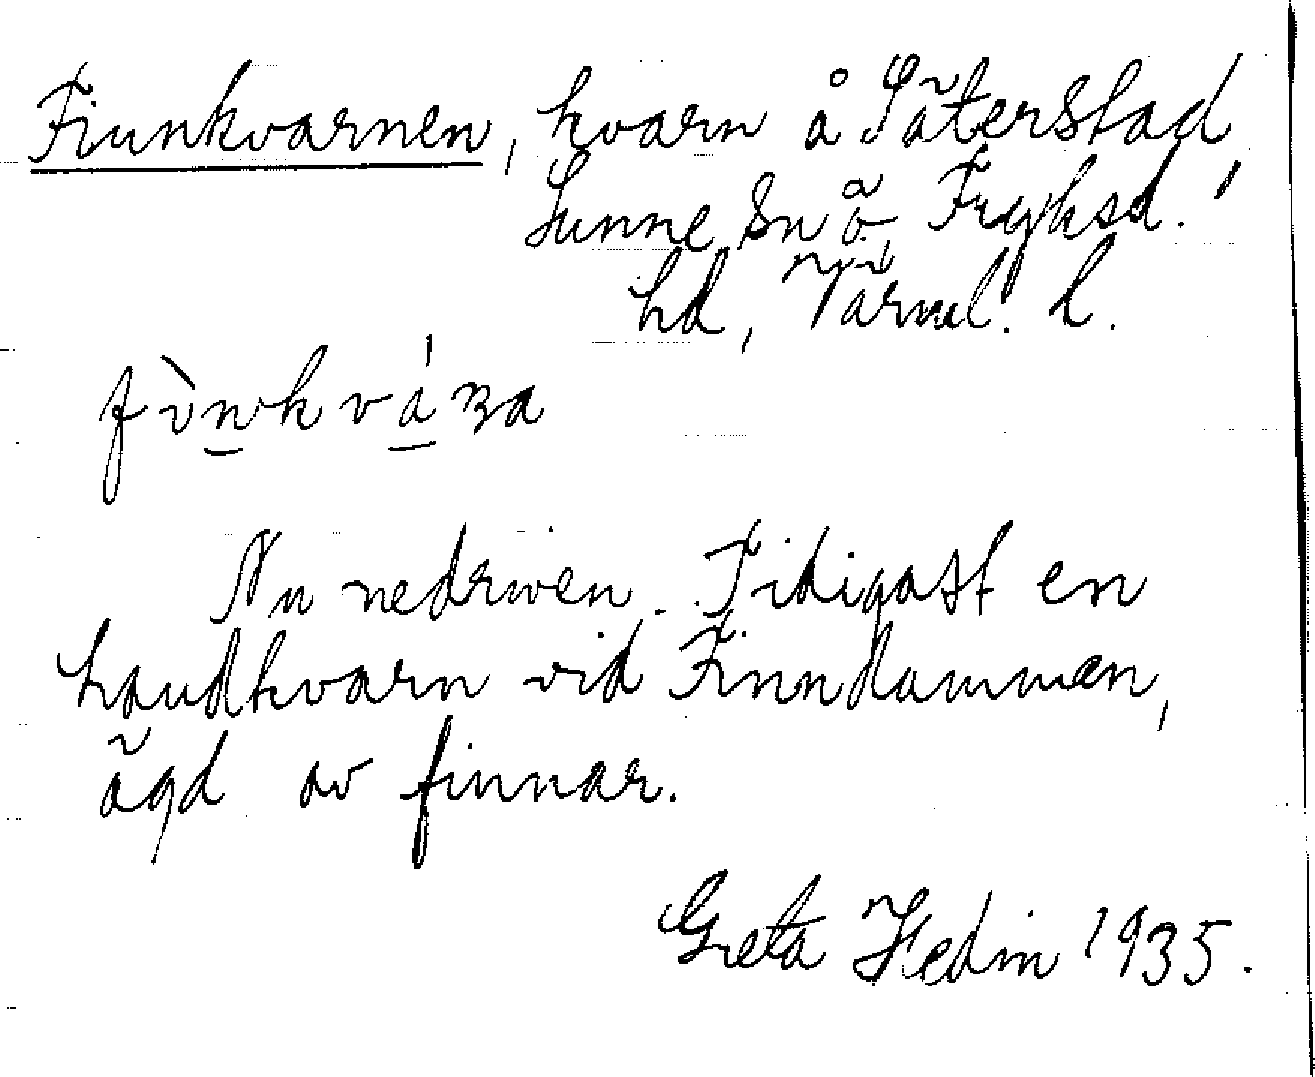 Finnkvarnen, kvarn å Säterstad,
Sunne sn ö. Fryksd.
hd, Värml. l.
fìnkvá
Nu nedriven. Tidigast en
handkvarn vid Finndammen,
ägd av finnar.
Greta Hedin 1935.